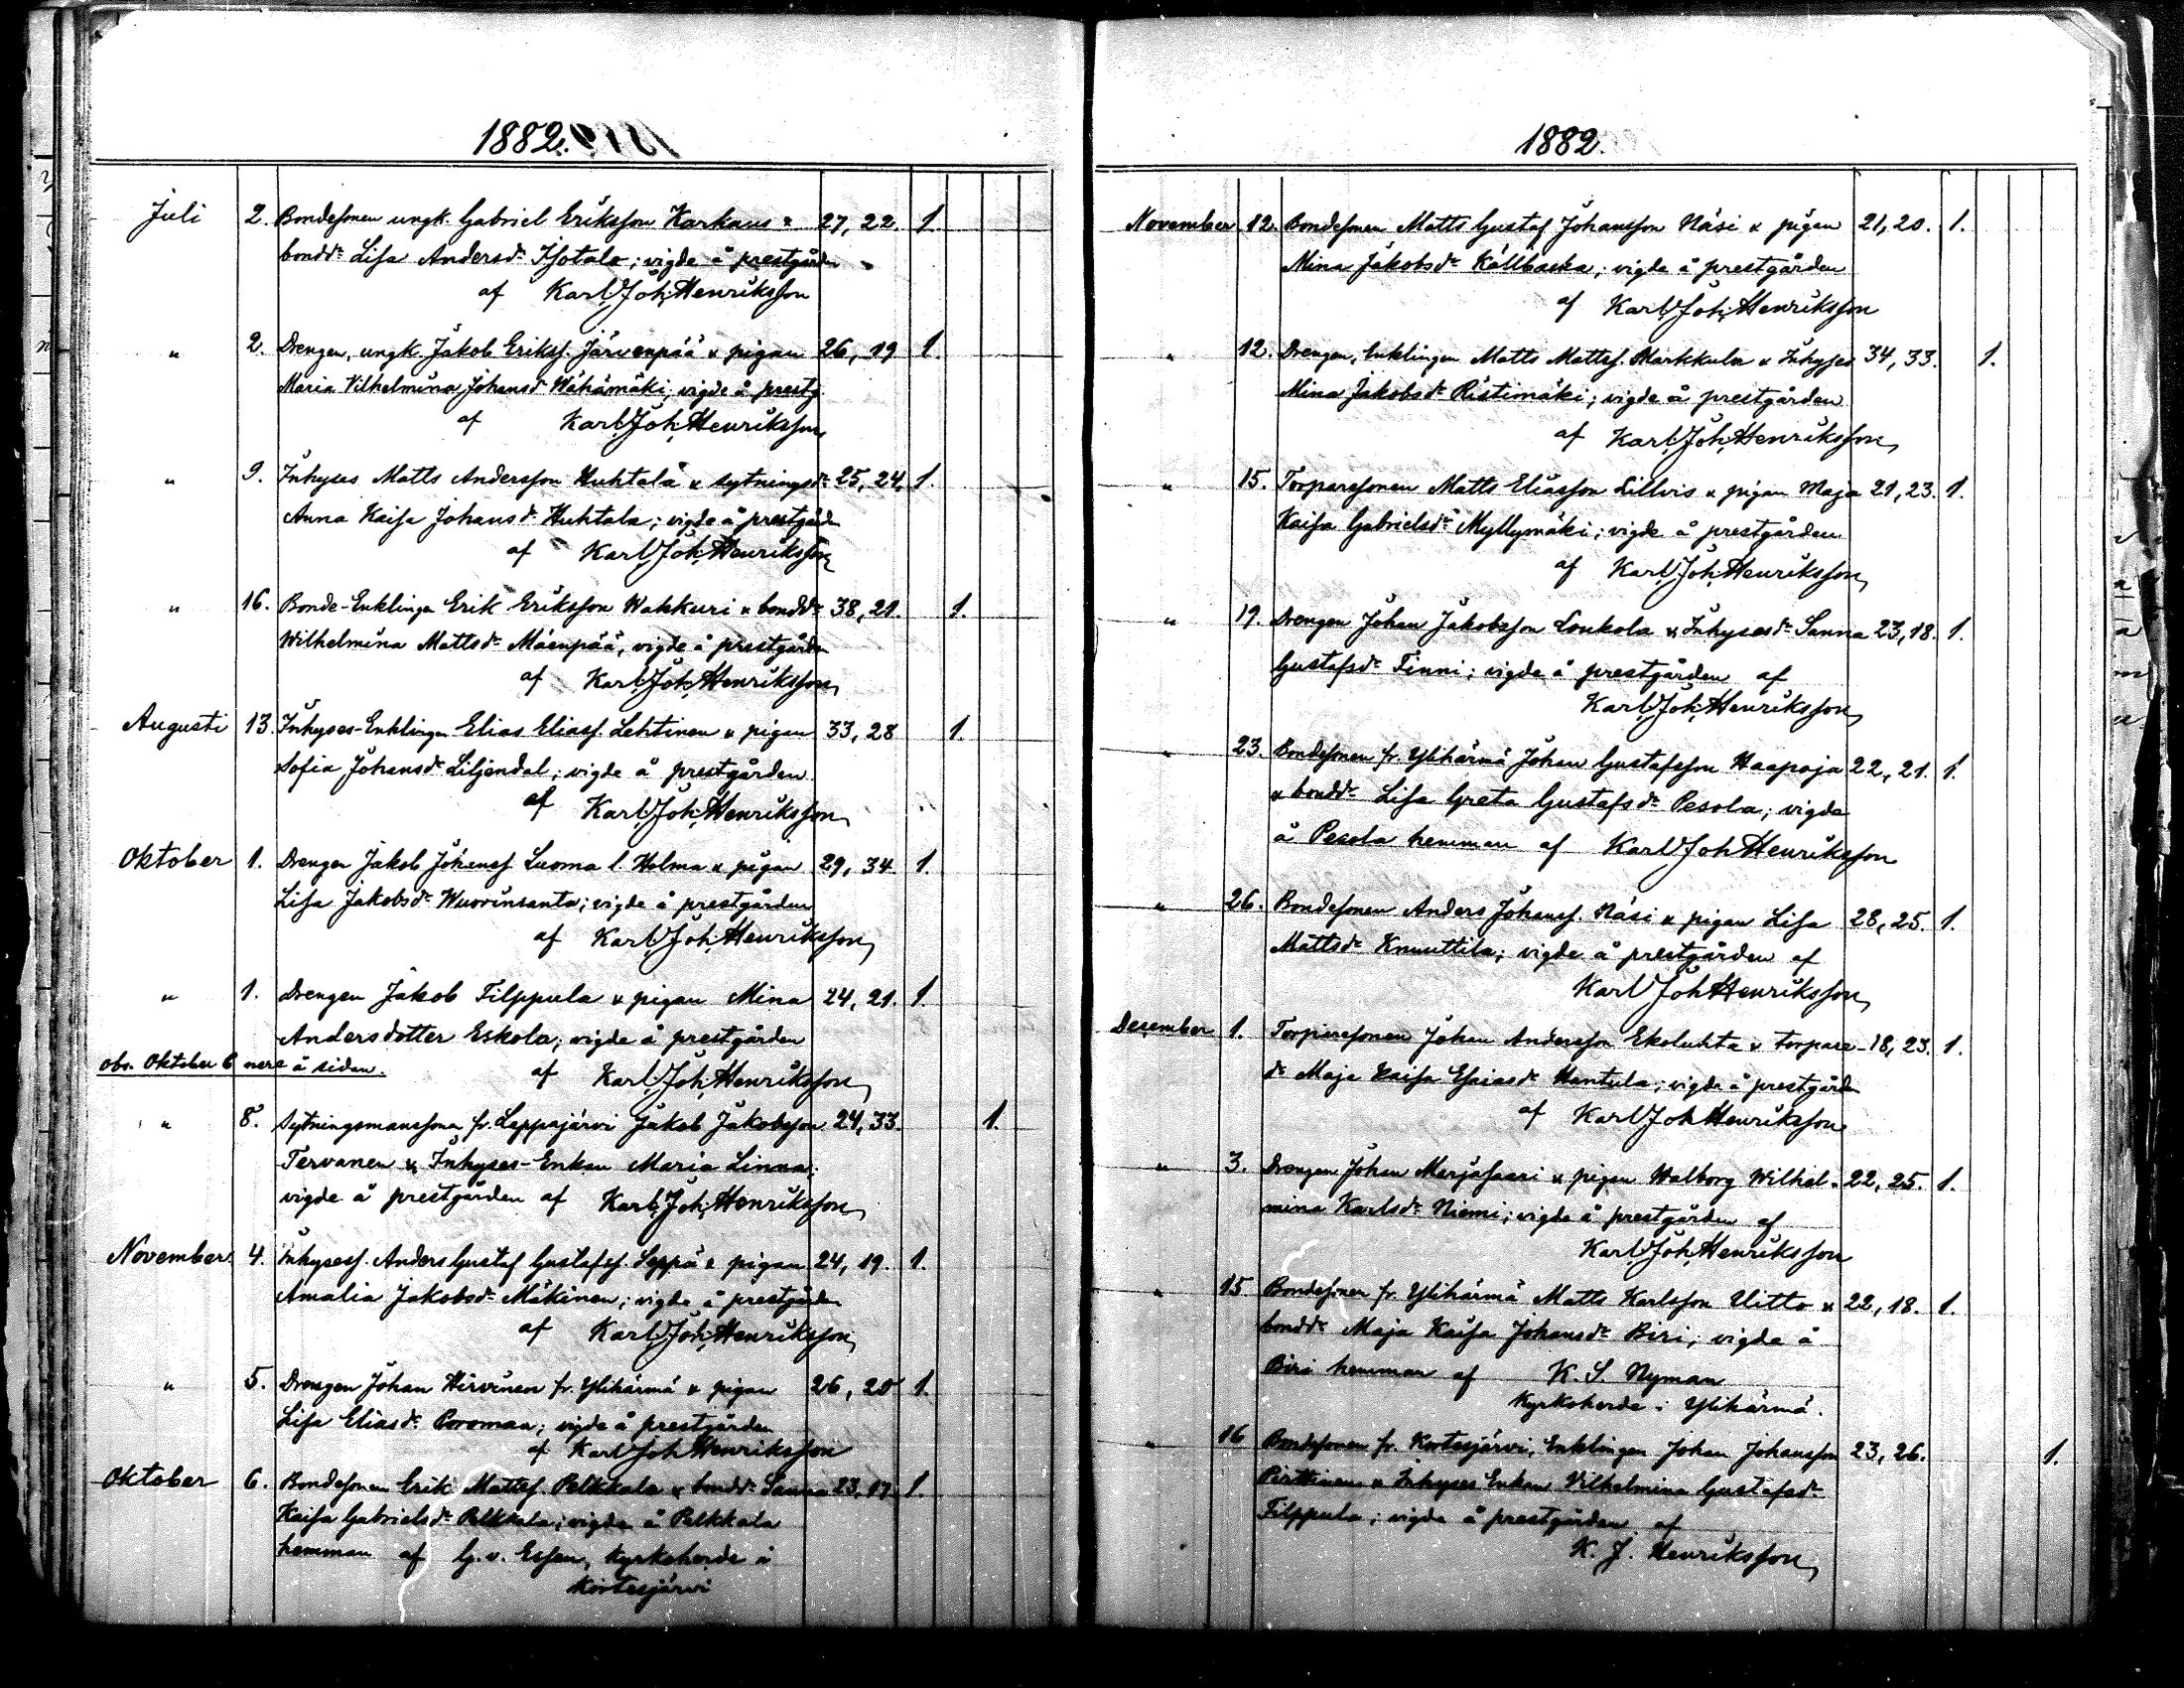 1882.
Juli 2. Bondesonen ungk. Gabriel Eriksson Karhaus & 27, 22. 1.
bondd: Lisa Andersd: Isotalo; vigde å prestgården
af Karl Joh. Henriksson
" 2. Drengen, ungk. Jakob Erikss. Järvenpää & pigan 26, 19 1.
Maria Vilhelmina Johansd: Wähämäki; vigde å prestg.
af Karl Joh. Henriksson
" 9. Inhyses Matts Andersson Huhtala & sytningsd: 25, 24, 1.
Anna Kaisa Johansd: Huhtala; vigde å prestgården
af Karl Joh. Henriksson
" 16. Bonde-Enklingen Erik Eriksson Wakkuri & bondd: 38, 21. 1.
Wilhelmina Mattsd: Mäenpää, vigde å prestgården
af Karl Joh. Henriksson
Augusti 13. Inhyses-Enklingen Elias Eliass. Lehtinen & pigan 33, 28 1.
Sofia Johansd: Liljendal; vigde å prestgården.
af Karl Joh. Henriksson
Oktober 1. Drengen Jakob Johanss. Luoma l. Holma & pigan 29, 34 1.
Lisa Jakobsd: Wuorinsanta; vigde å prestgården
af Karl Joh. Henriksson
" 1. Drengen Jakob Filppula & pigan Mina 24, 21. 1.
Andersdotter Eskola; vigde å prestgården
obs. Oktober 6 nere å sidan. af Karl Joh. Henriksson
" 8. Sytningsmanssonen fr. Lappajärvi Jakob Jakobsson 24, 33. 1.
Tervanen & Inhyses-Enkan Maria Linna;
vigde å prestgården af Karl Joh. Henriksson
November. 4. Inhysess. Anders Gustaf Gustafss. Seppä & pigan 24, 19. 1.
Amalia Jakobsd: Mäkinen; vigde å prestgården
af Karl Joh. Henriksson
" 5. Drengen Johan Hirvinen fr. Ylihärmä & pigan 26, 25 1.
Lisa Eliasd: Poromaa; vigde å prestgården
af Karl Joh Henriksson
Oktober 6. Bondesonen Erik Mattss. Pelkkala & bondd: Sanna 23, 17 1.
Kaisa Gabrielsd: Pelkkala; vigde å Pelkkala
hemman af G. v. Essen, kyrkoherde i
Kortesjärvi
1882.
November 12. Bondesonen Matts Gustaf Johansson Näsi & pigan 21, 20. 1.
Mina Jakobsd: Källbacka; vigde å prestgården
af Karl Joh. Henriksson
" 12. Drengen, Enklingen Matts Mattss. Markkula & Inhyses 34, 33. 1.
Mina Jakobsd: Ristimäki; vigde å prestgården
af Karl Joh. Henriksson
" 15. Torparesonen Matts Eliasson Lillvis & pigan Maja 21, 23. 1.
Kaisa Gabrielsd: Myllymäki; vigde å prestgården
af Karl Joh. Henriksson
" 19. Drengen Johan Jakobsson Loukola & Inhysesd: Sanna 23, 18. 1.
Gustafsd: Finni; vigde å prestgården af
Karl Joh. Henriksson
" 23. Bondesonen fr. Ylihärmä Johan Gustafsson Haapoja 22, 21. 1.
& bondd: Lisa Greta Gustafsd: Pesola; vigde
å Pesola hemman af Karl Joh Henriksson
" 26. Bondesonen Anders Johanss. Näsi & pigan Lisa 28, 25. 1.
Mattsd: Knuuttila; vigde å prestgården af
Karl Joh Henriksson
December 1. Torparesonen Johan Andersson Ekoluhta & torpare- 18, 23. 1.
d: Maja Kaisa Esaiasd: Hantula; vigde å prestgården
af Karl Joh Henriksson
" 3. Drengen Johan Marjasaari & pigan Walborg Wilhel- 22, 25. 1.
mina Karlsd: Niemi; vigde å prestgården af
Karl Joh. Henriksson
" 15 Bondesonen fr. Ylihärmä Matts Karlsson Uitto & 22, 18. 1.
bondd: Maja Kaisa Johansd: Biri; vigde å
Biri hemman af K. S. Nyman
Kyrkoherde i Ylihärmä.
" 16 Bondesonen fr. Kortesjärvi, Enklingen Johan Johansson 23, 26. 1.
Pirttinen & Inhyses Enkan Vilhelmina Gustafsd:
Filppula; vigde å prestgården af
K. J. Henriksson